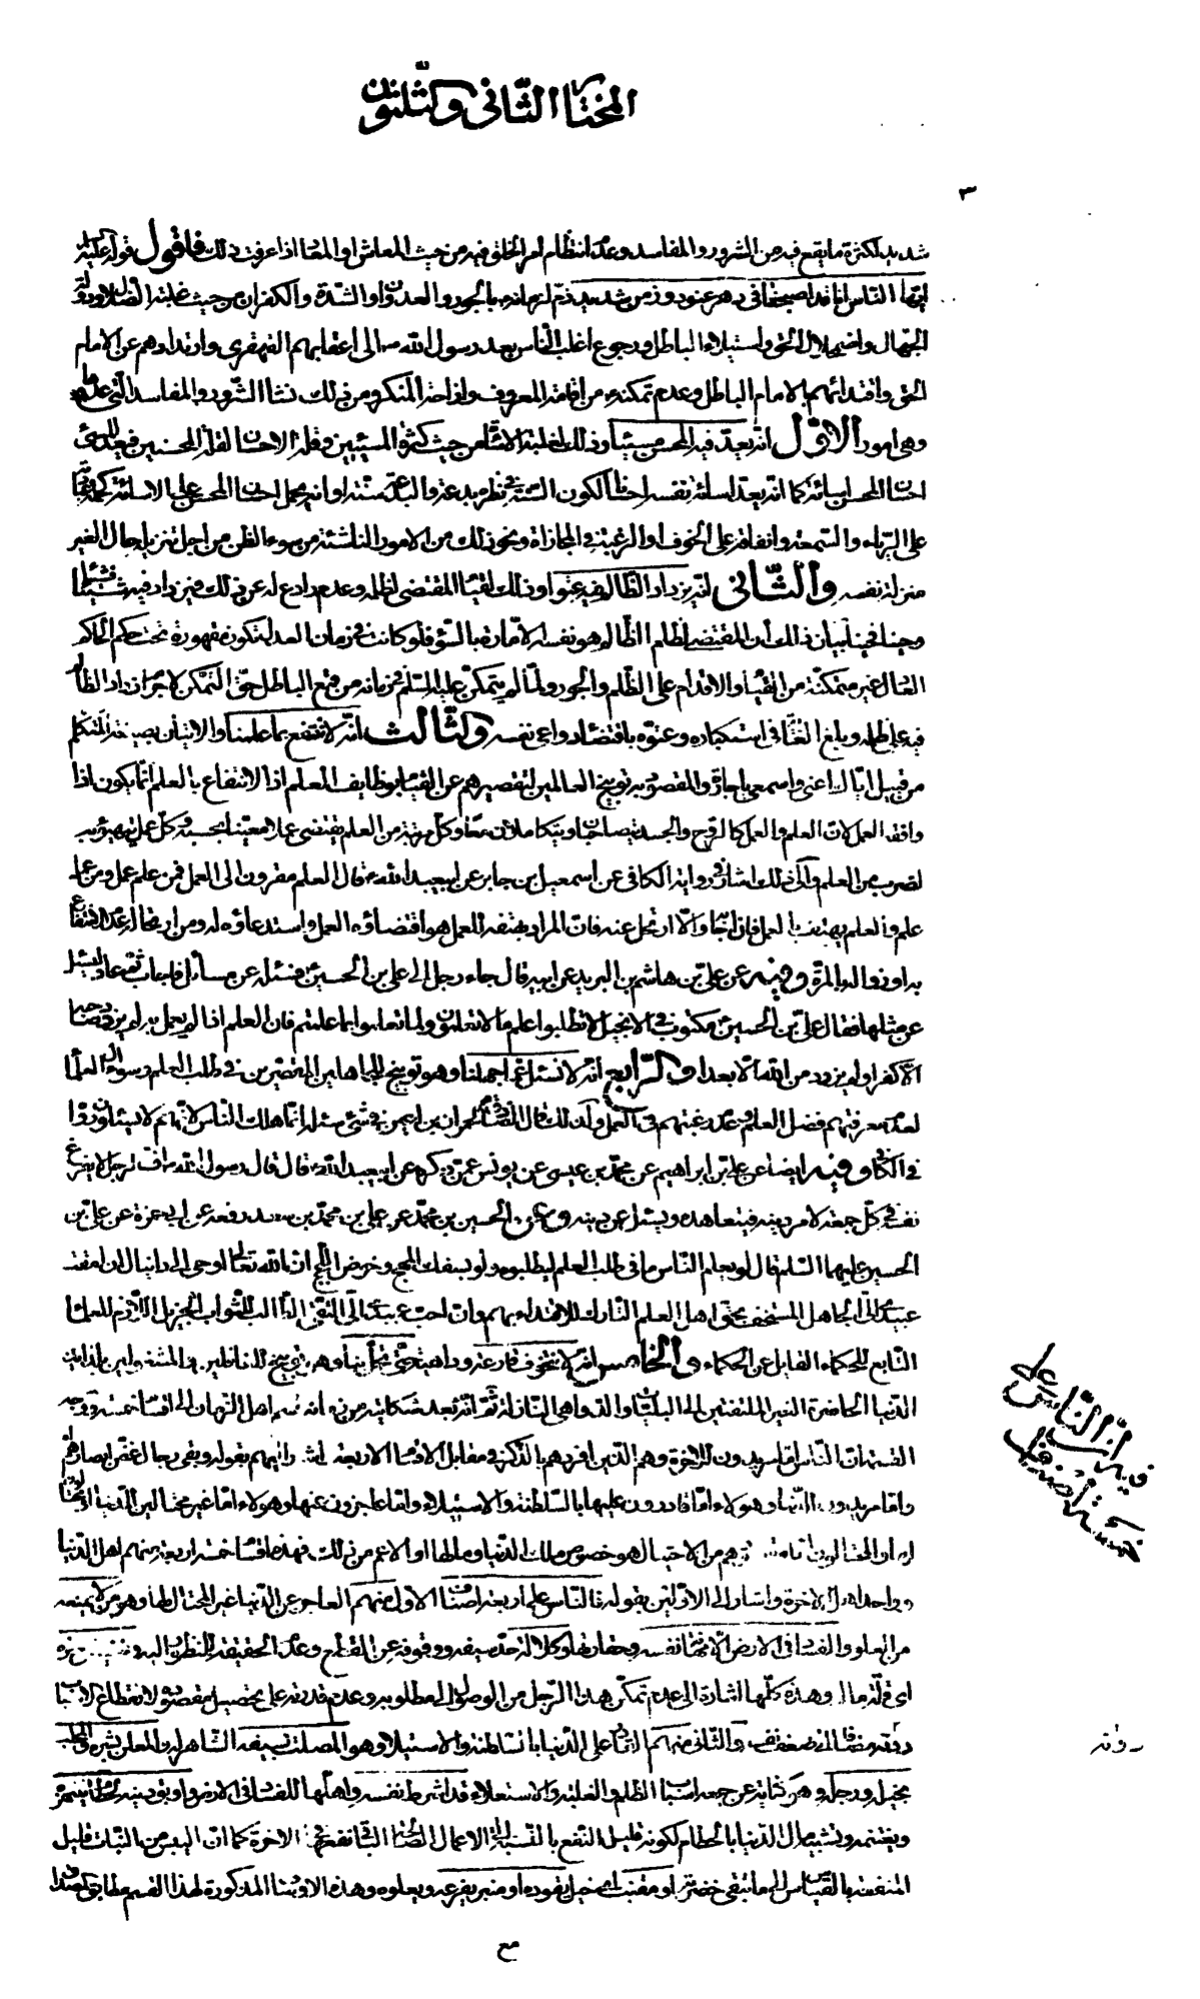 المختار الثاني والثلثون
٣
شديد لكثرة ما يقع فيه من الشرور والمفاسد وعدم انتظام امر الخلق فيه من حيث المعاش او المعاد اذا عرفت ذلك فاقول قوله عليه السلام
ايها الناس انا قد اصبحنا في دهر عنود وزمن شديد ذم لزمانه بالجور والعدوان والشدة والكفران من حيث غلبة الضلال ودولة
الجهال واضمحلال الحق واستيلاء الباطل ورجوع اغلب الناس بعد رسول الله ص الى اعقابهم القهقرى وارتدادهم عن الامام
الحق واقتدائهم بالامام الباطل وعدم تمكنه ع من اقامة المعروف وازاحة المنكر ومن ذلك نشا الشرور والمفاسد التي عدها
وهي امور الاول انه يعد فيه المحسن مسيئا وذلك لغلبة الاسائة من حيث كثرة المسيئين وقلة الاحسان لقلة المحسنين فيعد المسيء
احسان المحسن اسائة كما انه يعد اسائة نفسه احسانا لكون السنة في نظره بدعة والبدعة سنة او انه يحمل احسان المحسن على الاسائة
على الرياء والسمعة وانفاقه على الخوف او الرغبة في المجازاة ونحو ذلك من الامور الناشئة من سوء الظن من اجل تنزيله حال الغير
منزلة نفسه والثاني انه يزداد الظالم فيه عتوا وذلك لقيام المقتضي لظلمه وعدم رادع له عن ذلك فيزداد فيه شيئا فشيئا
وحينا فحينا بيان ذلك ان المقتضي لظلم الظالم هو نفسه الامارة بالسوء فلو كانت في زمان العدل لتكون مقهورة تحت حكم الحاكم
العادل غير متمكنة من القيام والاقدام على الظلم والجور ولما لم يتمكن عليه السلم في زمانه من قمع الباطل حق التمكن لاجرم ازداد الظالم
فيه على ظلمه وبلغ الغاية في استكباره وعتوه باقتضاء دواعي نفسه والثالث انه لا ننتفع بما علمنا والاتيان بصيغة المتكلم
من قبيل اياك اعني واسمعي يا جارة والمقصود به توبيخ العالمين لتقصيرهم عن القيام بوظايف العلم اذ الانتفاع بالعلم انما يكون اذا
وافقه العمل لان العلم والعمل كالروح والجسد يتصاحبان ويتكاملان معا وكل مرتبة من العلم يقتضي عملا معينا بحسبه وكل عمل يتهيؤ به
لضرب من العلم والى ذلك اشار في رواية الكافي عن اسمعيل بن جابر عن ابيعبد الله ع قال العلم مقرون الى العمل فمن علم عمل ومن عمل
علم والعلم يهتف بالعمل فان اجابه والا ارتحل عنه فان المراد بهتفه للعمل هو اقتضاؤه العمل واستدعاؤه له ومن ارتحاله عدم الانتفاع
به او زواله بالمرة وفيه عن علي بن هاشم بن البريد عن ابيه قال جاء رجل الى علي بن الحسين ع فسئله عن مسائل فاجاب ثم عاد ليسئل
عن مثلها فقال علي بن الحسين ع مكتوب في الانجيل لا تطلبوا علم ما لا تعلمون ولما تعملوا بما علمتم فان العلم اذا لم يعمل به لم يزدد صاحبه
الا كفرا ولم يزدد من الله الا بعدا والرابع انه لا نسئل عما جهلنا وهو توبيخ للجاهلين المقصرين في طلب العلم وسؤال العلما
لعدم معرفتهم فضل العلم وعدم رغبتهم في العمل ولذلك قال الصادق ع لحمران بن اعين في شيء سئله انما هلك الناس لانهم لا يسئلون رواه
في الكافي وفيه ايضا عن علي بن ابراهيم عن محمد بن عيسى عن يونس عمن ذكره عن ابيعبد الله ع قال قال رسول الله ص اف لرجل لا يفرغ
نفسه في كل جمعة لامر دينه فيتعاهده ويسئل عن دينه وعن الحسين بن محمد عن علي بن محمد بن سعد رفعه عن ابي حمزة عن علي بن
الحسين عليهما السلم قال لو يعلم الناس ما في طلب العلم لطلبوه ولو بسفك المهج وخوض اللجج ان الله تعالى اوحى الى دانيال ان امقت
عبيدي الي الجاهل المستخف بحق اهل العلم التارك للاقتداء بهم وان احب عبيدي الي التقي الطالب للثواب الجزيل اللازم للعلما
التابع للحكماء القابل عن الحكماء والخامس انه لا نتخوف قارعة وداهية حتى تحل بنا وهو توبيخ للغافلين المشتغلين بلذايذ
الدنيا الحاضرة الغير الملتفتين الى البليات والدواهي النازلة ثم انه بعد شكايته من زمانه قسم اهل الزمان الى اقسام خمسة ووجه
القسمة ان الناس اما مريدون للاخرة وهم الذين افردهم بالذكر في مقابل الاقسام الاربعة واشار اليهم بقوله وبقي رجال غض ابصارهم
واما مريدون للدنيا وهؤلاء اما قادرون عليها بالسلطنة والاستيلاء واما عاجزون عنها وهؤلاء اما غير محتالين للدنيا
من الاحتيال هو خصوص ملك الدنيا ومالها او الاعم من ذلك فهذه اقسام خمسة اربعة منهم اهل الدنيا
وواحد اهل الاخرة واشار الى الاولين بقوله فالناس على اربعة اصناف الاول منهم العاجز عن الدنيا غير المحتال لها وهو من لا يمنعه
من العلو والفساد في الارض الا مهانة نفسه وحقارتها وكلالة حد سيفه ووقوفه عن القطع وعدم الحقيقة بالنظر اليه ونضيض وفره
اي قلة ماله وهذه كلها اشارة الى عدم تمكن هذا الرجل من الوصول الى مطلوبه وعدم قدرته على تحصيل مقصوده لانقطاع الاسباب
دونه مضافا الى ضعف نفسه والثاني منهم القادر على الدنيا بالسلطنة والاستيلاء وهو المصلت بسيفه الشاهر له والمعلن بشره والمجلب
بخيله ورجله وهو كناية عن جمعه اسباب الظلم والغلبة والاستعلاء قد اشرط نفسه واهلها للفساد في الارض واوبق دينه لحطام ينتهزه
ويغتنمه وتشبيه مال الدنيا بالحطام لكونه قليل النفع بالنسبة الى الاعمال الصالحة الباقي نفعها في الاخرة كما ان اليبس من النبات قليل
المنفعة بالقياس الى ما تبقى خضرته او مقنب اي خيل يقوده او منبر يفرعه ويعلوه وهذه الاوصاف المذكورة لهذا القسم مطابق
فيه ان الناس على
خمسة اصناف
مع